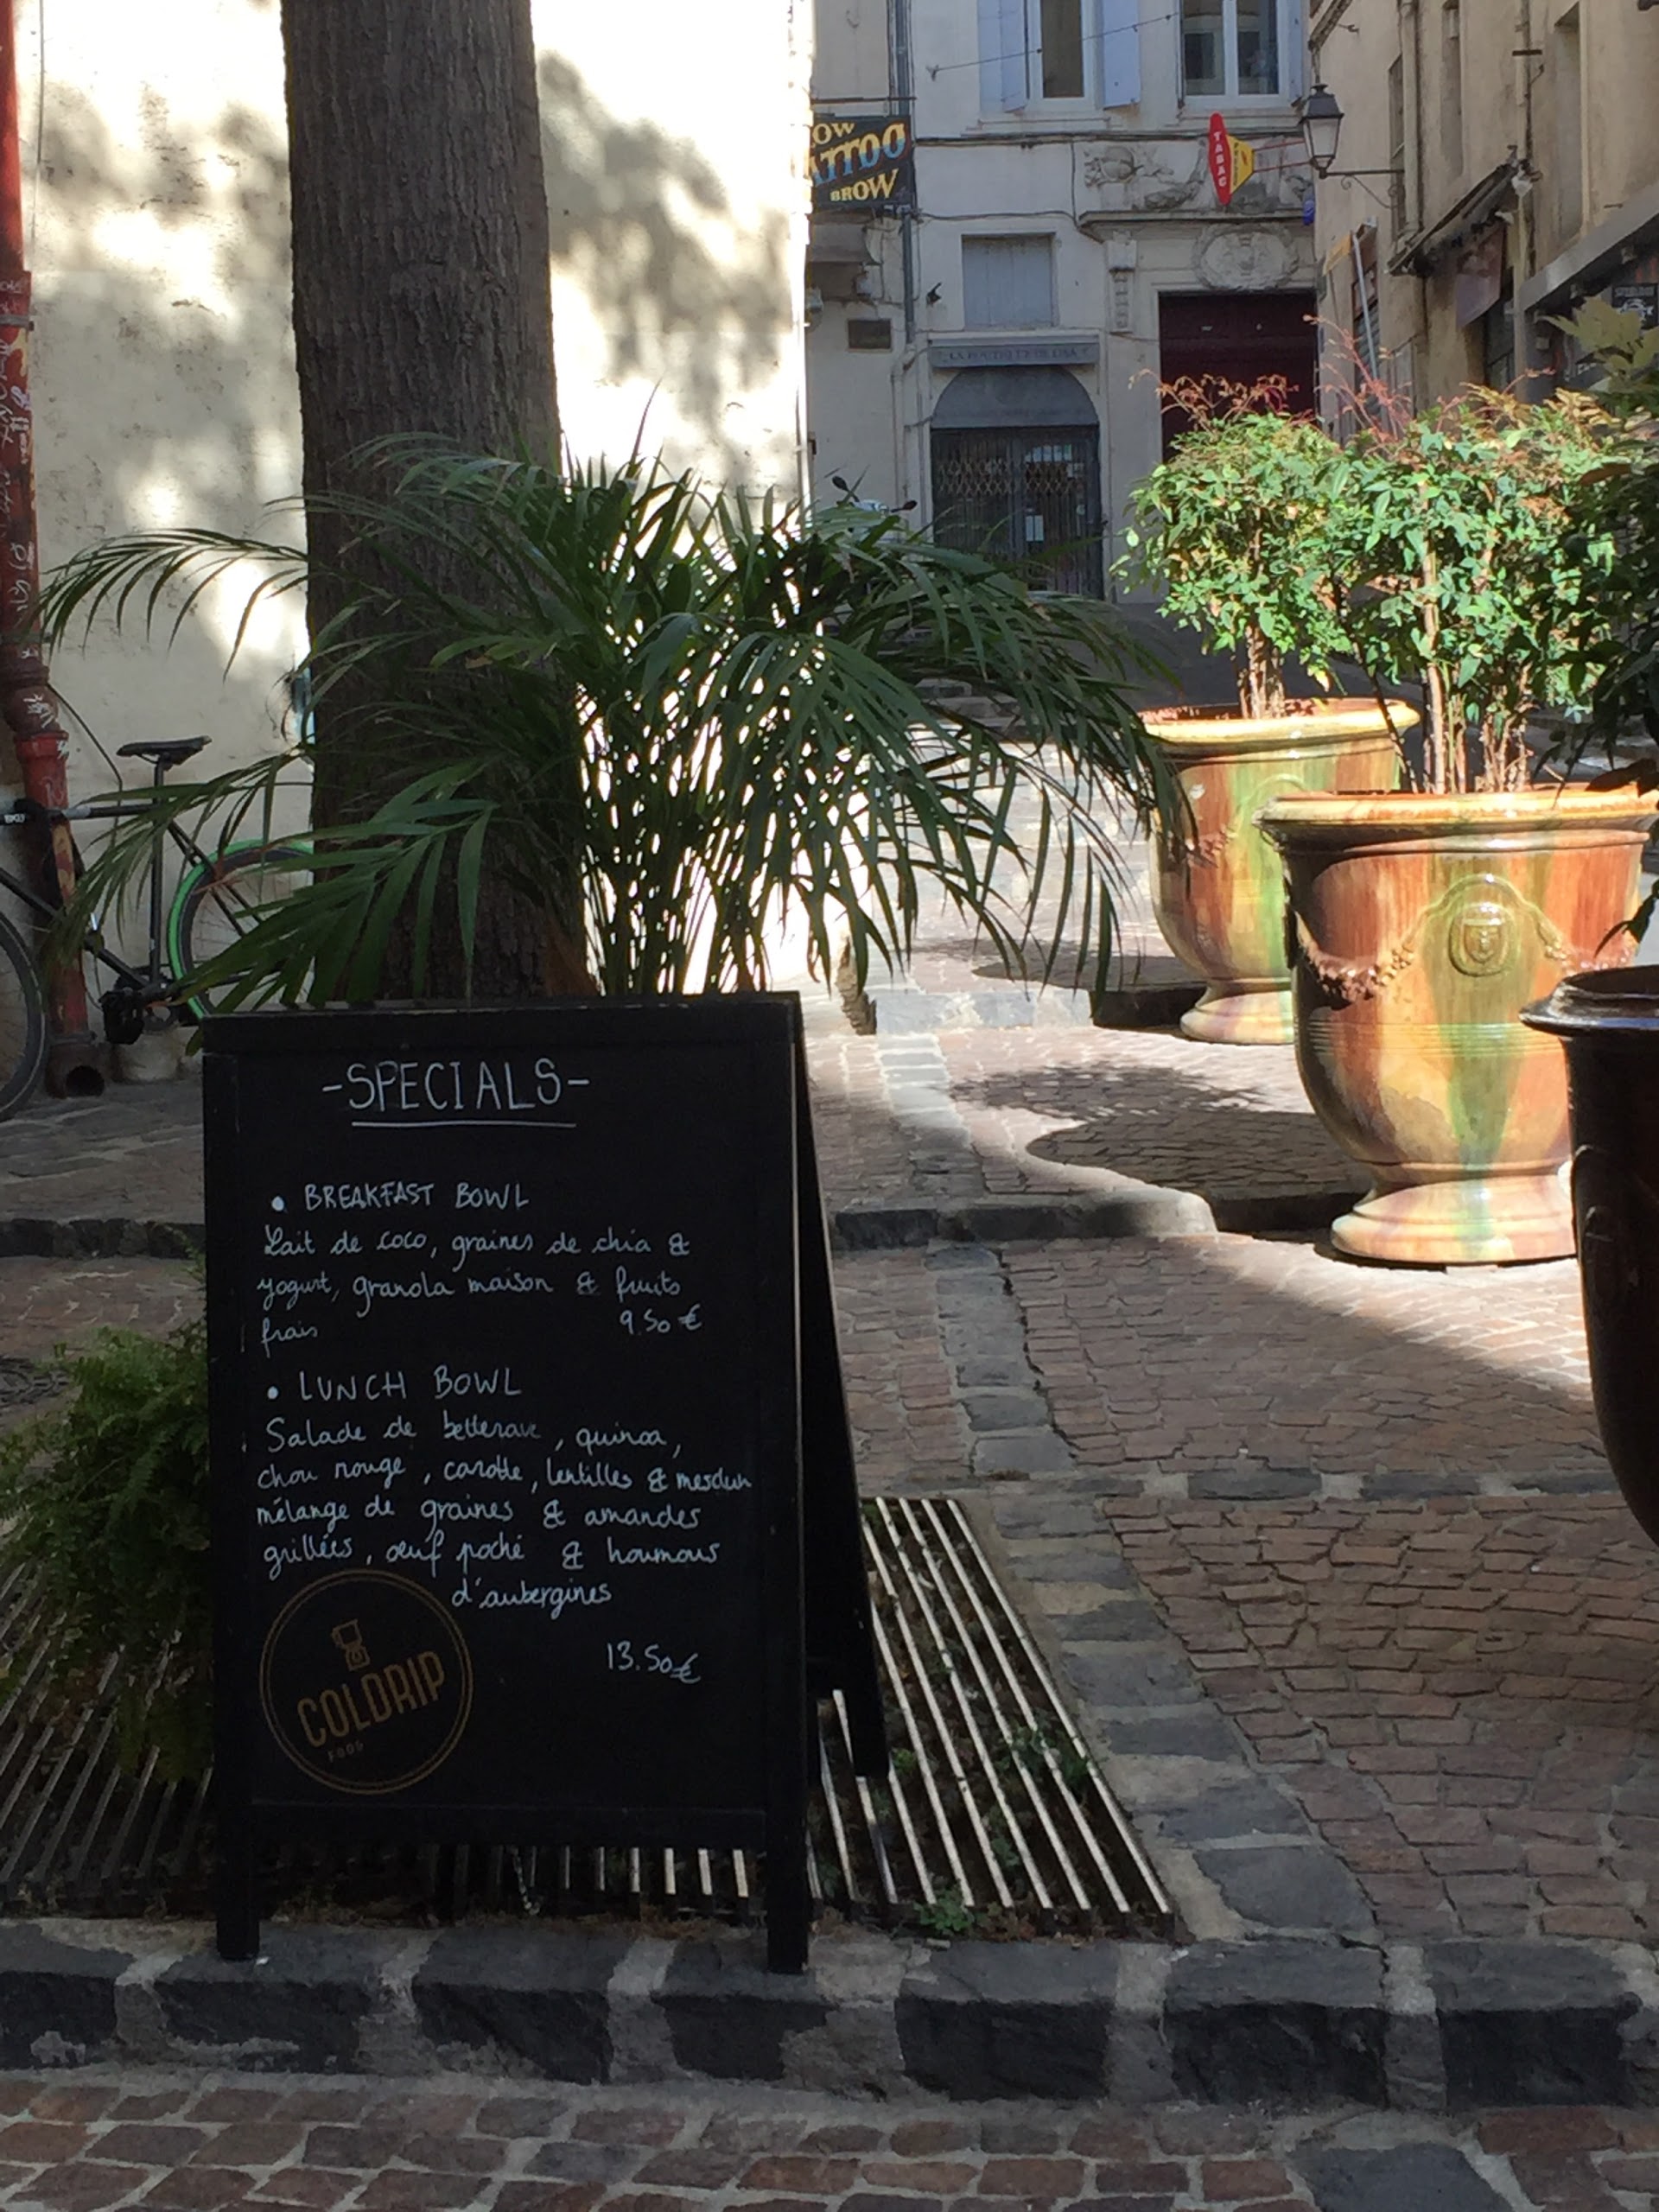 OW
ATTOO
BROW
TABAC
-SPECIALS-
• BREAKFAST BOWL
Lait de coco, graines de chia &
yogurt, granola maison & fruits
frais 9.50 €
• LUNCH BOWL
Salade de betterave, quinoa,
chou rouge, carotte, lentilles & mesclun
mélange de graines & amandes
grillées, œuf poché & houmous
d'aubergines
13.50€
COLDRIP
FOOD